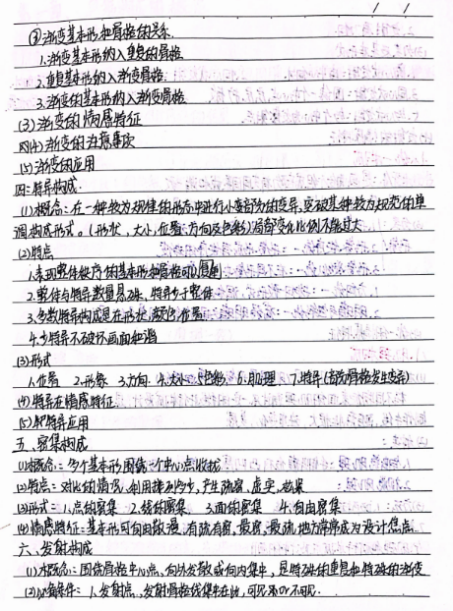 ③渐变基本形和骨格的关系.
1.渐变基本形纳入重复的骨格
2.重复基本形纳入渐变骨格
3.渐变的基本形纳入渐变骨格
(3)渐变的情感特征
(4)渐变的注意事项
(5)渐变的应用
四:特异构成.
(1)概念:在一种较为规律的形态中进行小部分的变异,突破某种较为规范的单
调构成形式。(形状,大小,位置,方向及色彩)局部变化比例不能过大
(2)特点
1.表现整体秩序的基本形和骨格可以
2.整体与特异数量悬殊,特异少于整体
3.多数特异构成是在形状,颜色,位置
4.特异不破坏画面和谐
(3)形式
1.位置 2.形象 3.方向 4.大小 5.色彩 6.肌理 7.特异(部分骨格发生变异)
(4)特异在情感特征
(5)特异应用
五、密集构成
(1)概念:多个基本形围绕一个中心点收拢
(2)特点:对比的情况,利用排列的多少,产生疏密,虚实,效果
(3)形式:1.点的密集 2.线的密集 3.面的密集 4.自由密集
(4)情感特征:基本形可自由散漫,有疏有密,最密,最疏地方常常成为设计焦点
六、发射构成
(1)概念:围绕骨格中心点、向外发散或向内集中,是特殊的重复和特殊的渐变
(2)条件:1.发射点、发射骨格线集中在此,可见or不可见.